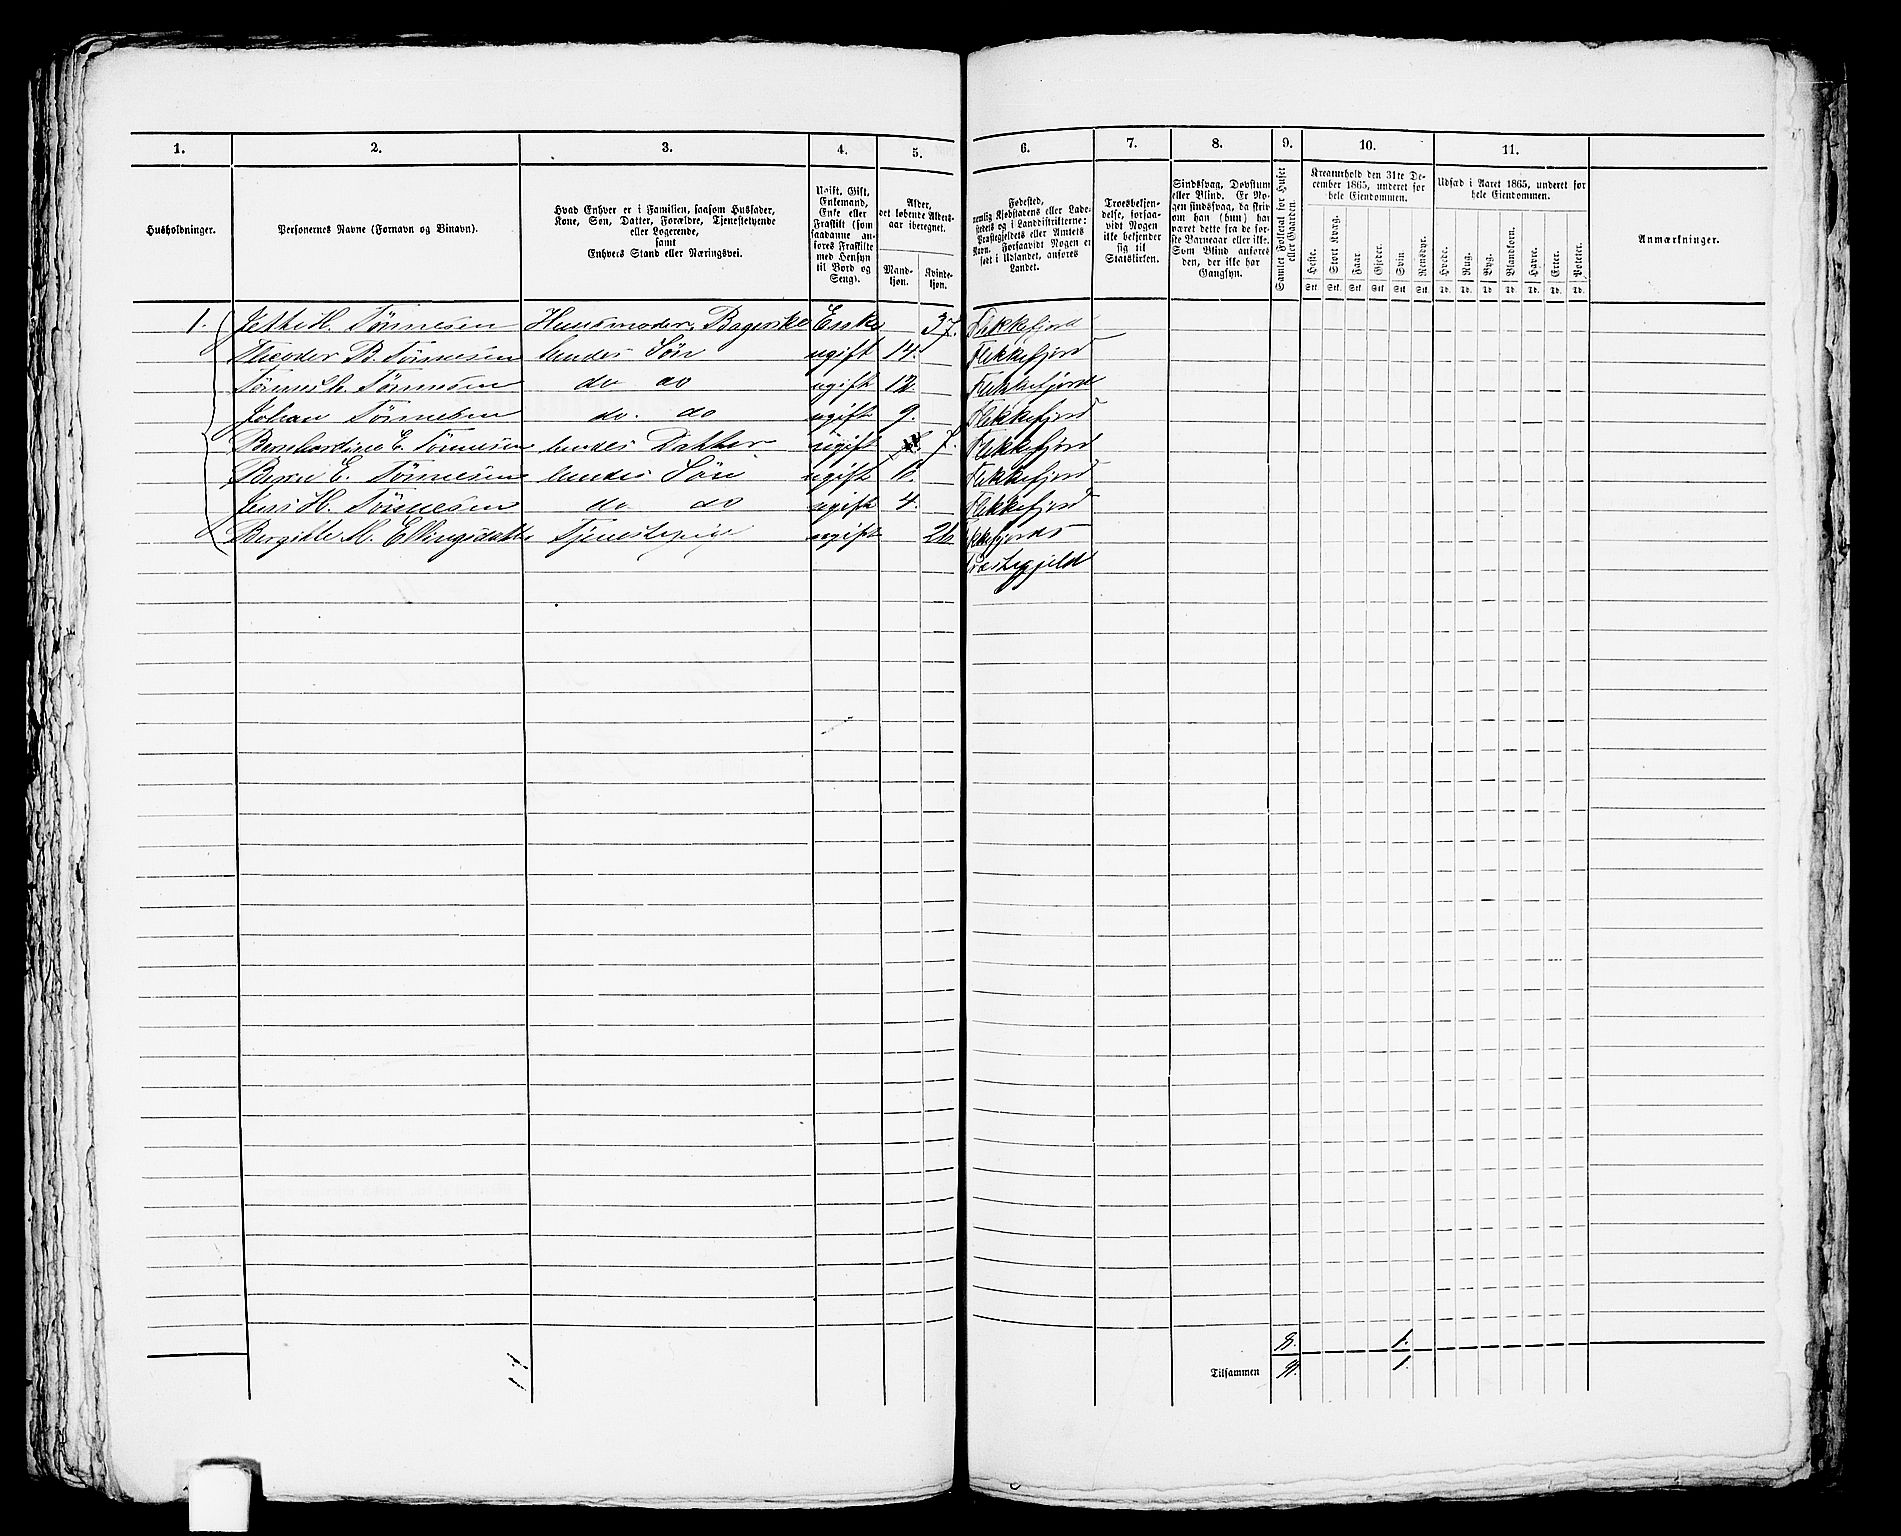 1. 2. 3. 4. 5. 6. 7. 8. 9. 10. 11.
Husholdninger.
Personernes Navne (Fornavn og Binavn).
Hvad Enhver er i Familien, saasom Husfader,
Kone, Søn, Datter, Forældre, Tjenestetyende
eller Logerende,
samt
Enhvers Stand eller Næringsvei.
Ugift, Gift,
Enkemand,
Enke eller
Fraskilt (som
saadanne an-
føres Fraskilte
med Hensyn
til Bord og
Seng).
Alder,
det løbende Alders-
aar iberegnet.
Mand-
kjøn.
Kvinde-
kjøn.
Fødested,
nemlig Kjøbstadens eller Lade-
stedets og i Landdistrikterne:
Præstegjeldets eller Amtets
Navn. Forsaavidt Nogen er
født i Udlandet, anføres
Landet.
Troesbekjen-
delse, forsaa-
vidt Nogen
ikke bekjender
sig til
Statskirken.
Sindssvag, Døvstum
eller Blind. Er No-
gen sindssvag, da skriv
om han (hun) har
været dette fra de før-
ste Barneaar eller ikke.
Som Blind anføres
den, der ikke har
Gangsyn.
Samlet Folketal for Huset
eller Gaarden.
Kreaturhold den 31te De-
cember 1865, underet for
hele Eiendommen.
Heste. Stort Kvæg. Faar. Gjeder. Svin. Rensdyr.
Stk. Stk. Stk. Stk. Stk. Stk.
Udsæd i Aaret 1865, underet for
hele Eiendommen.
Hvede. Rug. Byg. Blandkorn. Havre. Erter. Poteter.
Td. Td. Td. Td. Td. Td. Td.
Anmærkninger.
1. H. Tønnesen Huusmoder, Enke 37. Flekkefjord
Theodor B. Tønnesen hendes Søn ugift 14. Flekkefjord
Tønnesen do do ugift 12. Flekkefjord
Johan Tønnesen do. do ugift 9. Flekkefjord
Bernhardine E. Tønnesen hendes Datter ugift 7. Flekkefjord
E. Tønnesen hendes Søn ugift 6. Flekkefjord
Jens H. Tønnesen do do ugift 4. Flekkefjord
Bergitte M. Ellingsdatter Tjenestepige ugift 26 Flekkefjords
Præstegjeld
8. 1.
Tilsammen 1.